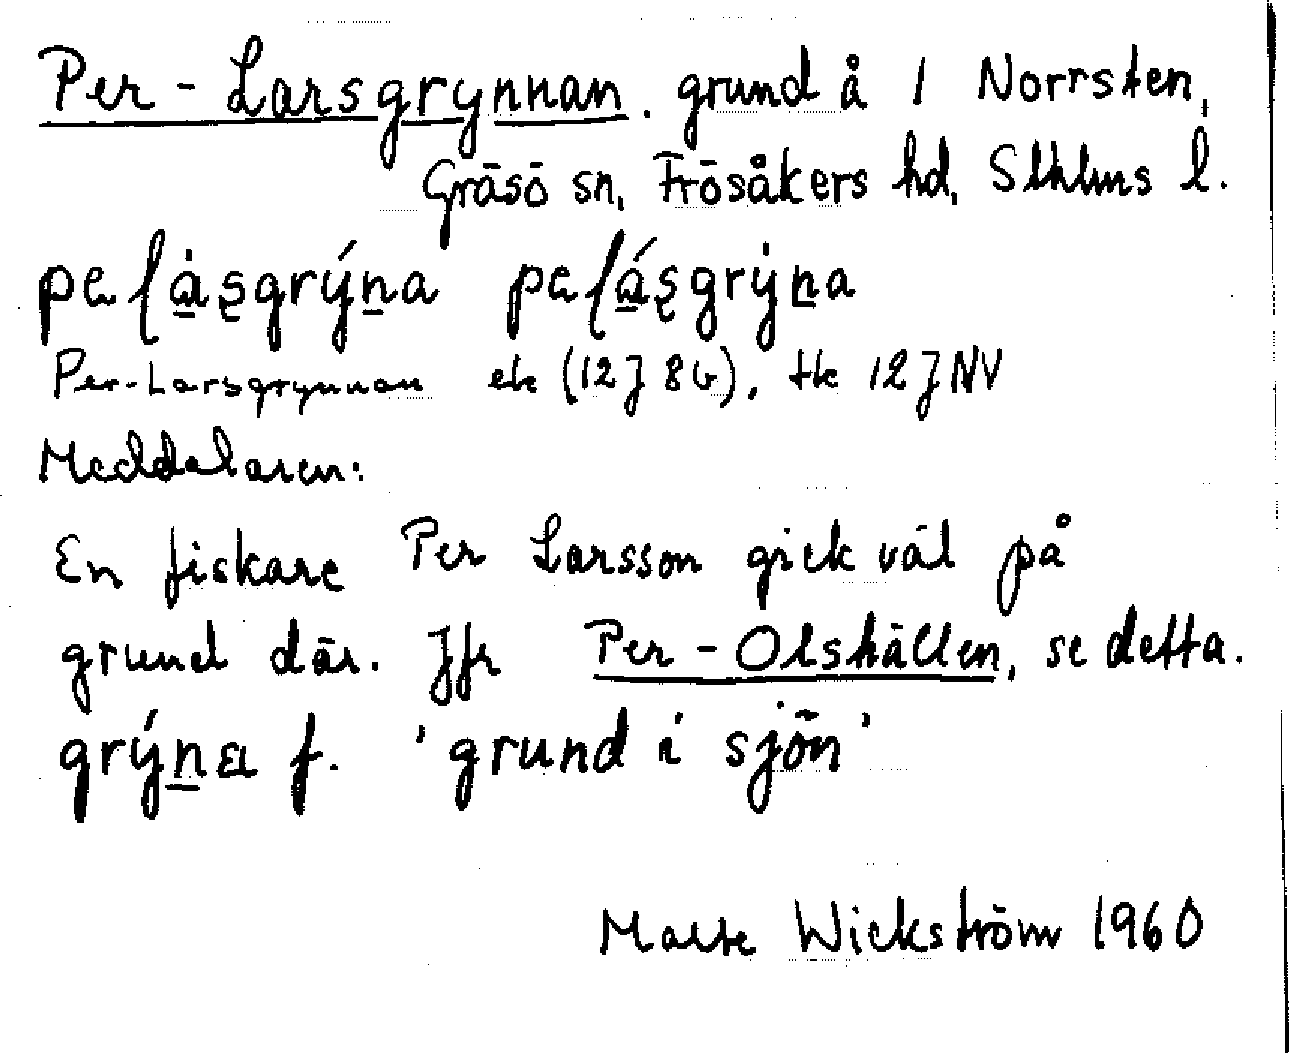 Per-Larsgrynnan. grund å 1 Norrsten,
Gräsö sn, Frösåkers hd, Sthlms l.
pelåsgrýna pelásgrẏna
Per-Larsgrynnan ek (12J 8b), tk 12J NV
Meddelaren:
En fiskare Per Larsson gick väl på
grund där. Jfr Per-Olshällen, se detta.
grýna f. 'grund i sjön'
Malte Wickström 1960